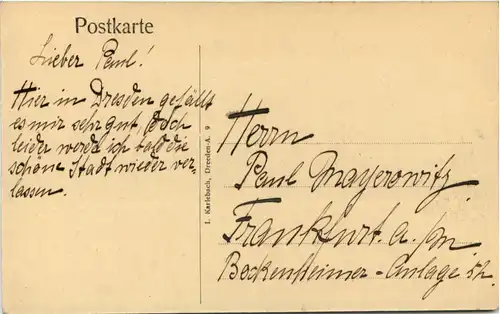 Postkarte
Lieber Paul!
Hier in Dresden gefällt
es mir sehr gut, doch
leider werd ich bald die
schöne Stadt wieder ver-
lassen.
I. Karlebach, Dresden-A. 9
Herrn
Paul Mayerowitz
Frankfurt. a. M
Bockenheimer-Anlage 52.